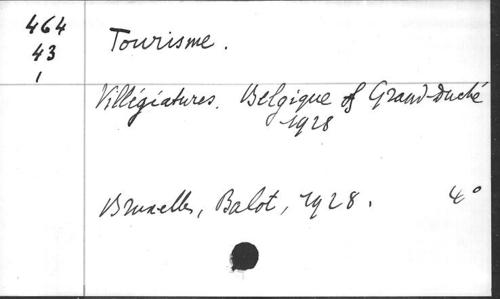 464
43
1
Tourisme.
Villégiatures. Belgique & Grand-Duché
1928
Bruxelles, Balot, 1928. 4°